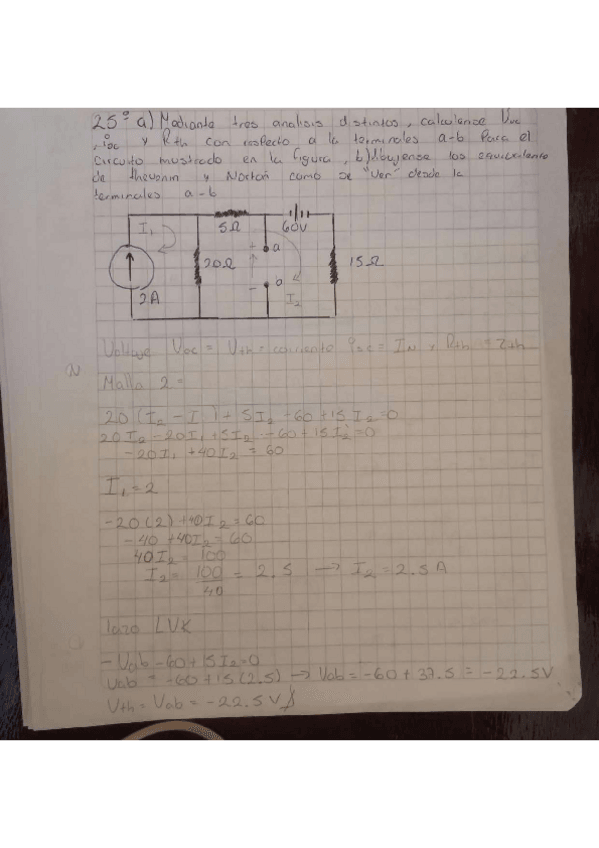 25° a) Mediante tres analisis distintos, calculence Voc
, ioc y Rth con respecto a la terminales a-b Para el
Circuito mustrado en la figura, b) dibujense los equivalente
de thevenin y Norton como se "Ver" desde la
terminales a-b
I1
5Ω
60V
+ a
20Ω
15Ω
- a
2A
I2
Voltaje Voc = Vth = corriente Isc = IN y Rth = Zth
Malla 2 =
20(I2 - I) + 5I2 - 60 + 15I2 = 0
20I2 - 20I1 + 5I2 - 60 + 15I2 = 0
-20I1 + 40I2 = 60
I1 = 2
-20(2) + 40I2 = 60
-40 + 40I2 = 60
40I2 = 100
I2 = 100/40 = 2.5 → I2 = 2.5A
lazo LVK
-Vab - 60 + 15I2 = 0
Vab = -60 + 15(2.5) → Vab = -60 + 37.5 = -22.5V
Vth = Vab = -22.5V